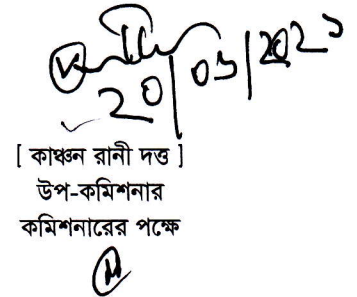 20/03/2023
[ কাঞ্চন রানী দত্ত ]
উপ-কমিশনার
কমিশনারের পক্ষে